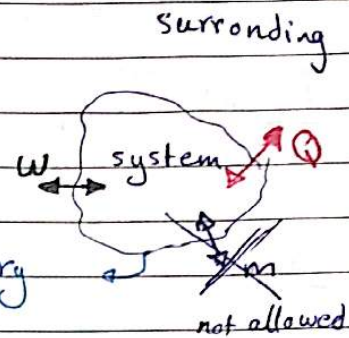 surronding
W system Q
ry
m
not allowed